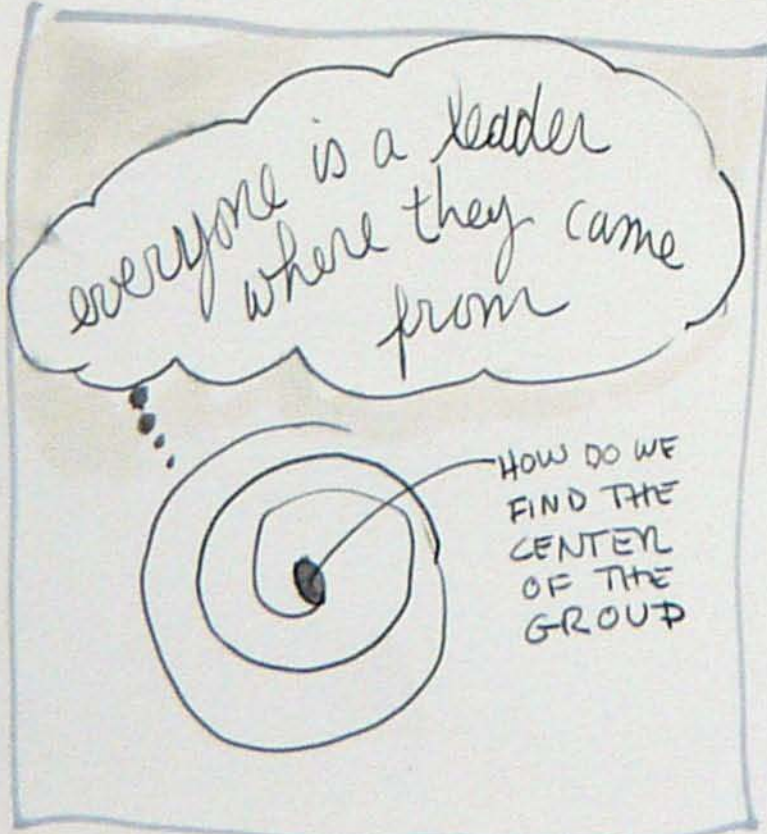 everyone is a leader
where they came
from
HOW DO WE
FIND THE
CENTER
OF THE
GROUP